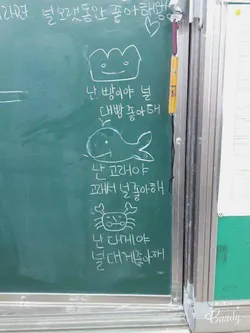 널 오랫동안 좋아해
난 빵이야 널
대빵 좋아해
난 고래야
고래서 널 좋아해
난 대게야
널 대게 좋아해
Candy